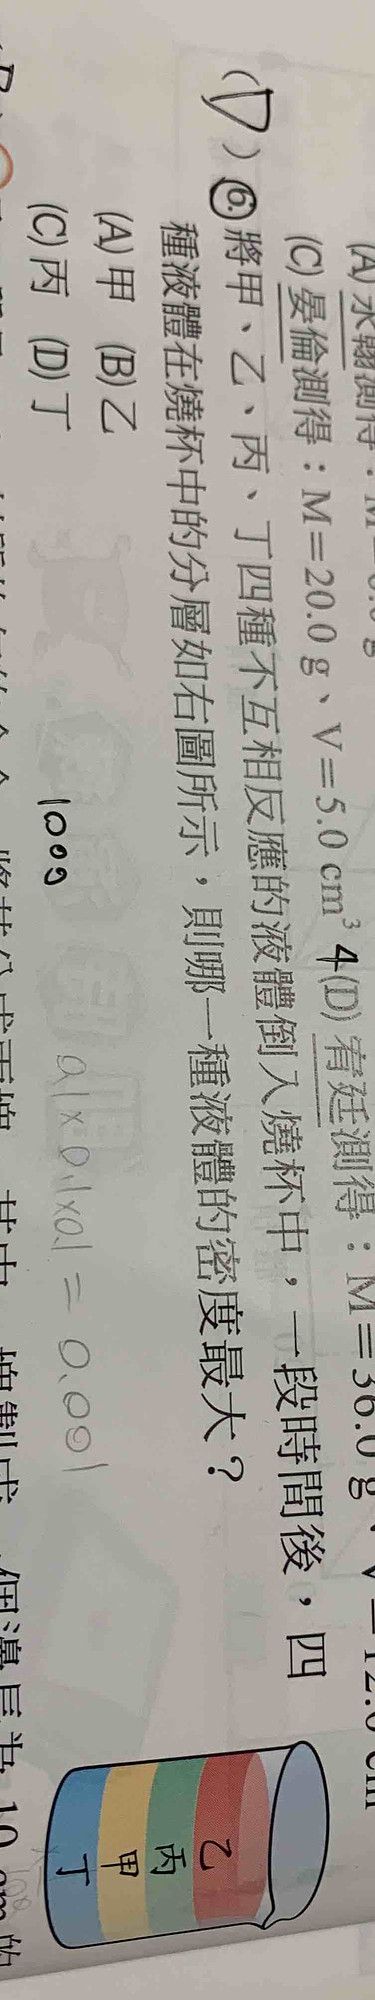 (C) 晏倫測得：M＝20.0 g、V＝5.0 cm³ 4 (D) 宥廷測得：M＝36.0 g、V＝12.0 cm
(D) 6. 將甲、乙、丙、丁四種不互相反應的液體倒入燒杯中，一段時間後，四
種液體在燒杯中的分層如右圖所示，則哪一種液體的密度最大？
(A) 甲 (B) 乙
(C) 丙 (D) 丁
乙
丙
甲
丁
100g
0.1×0.1×0.1＝0.001